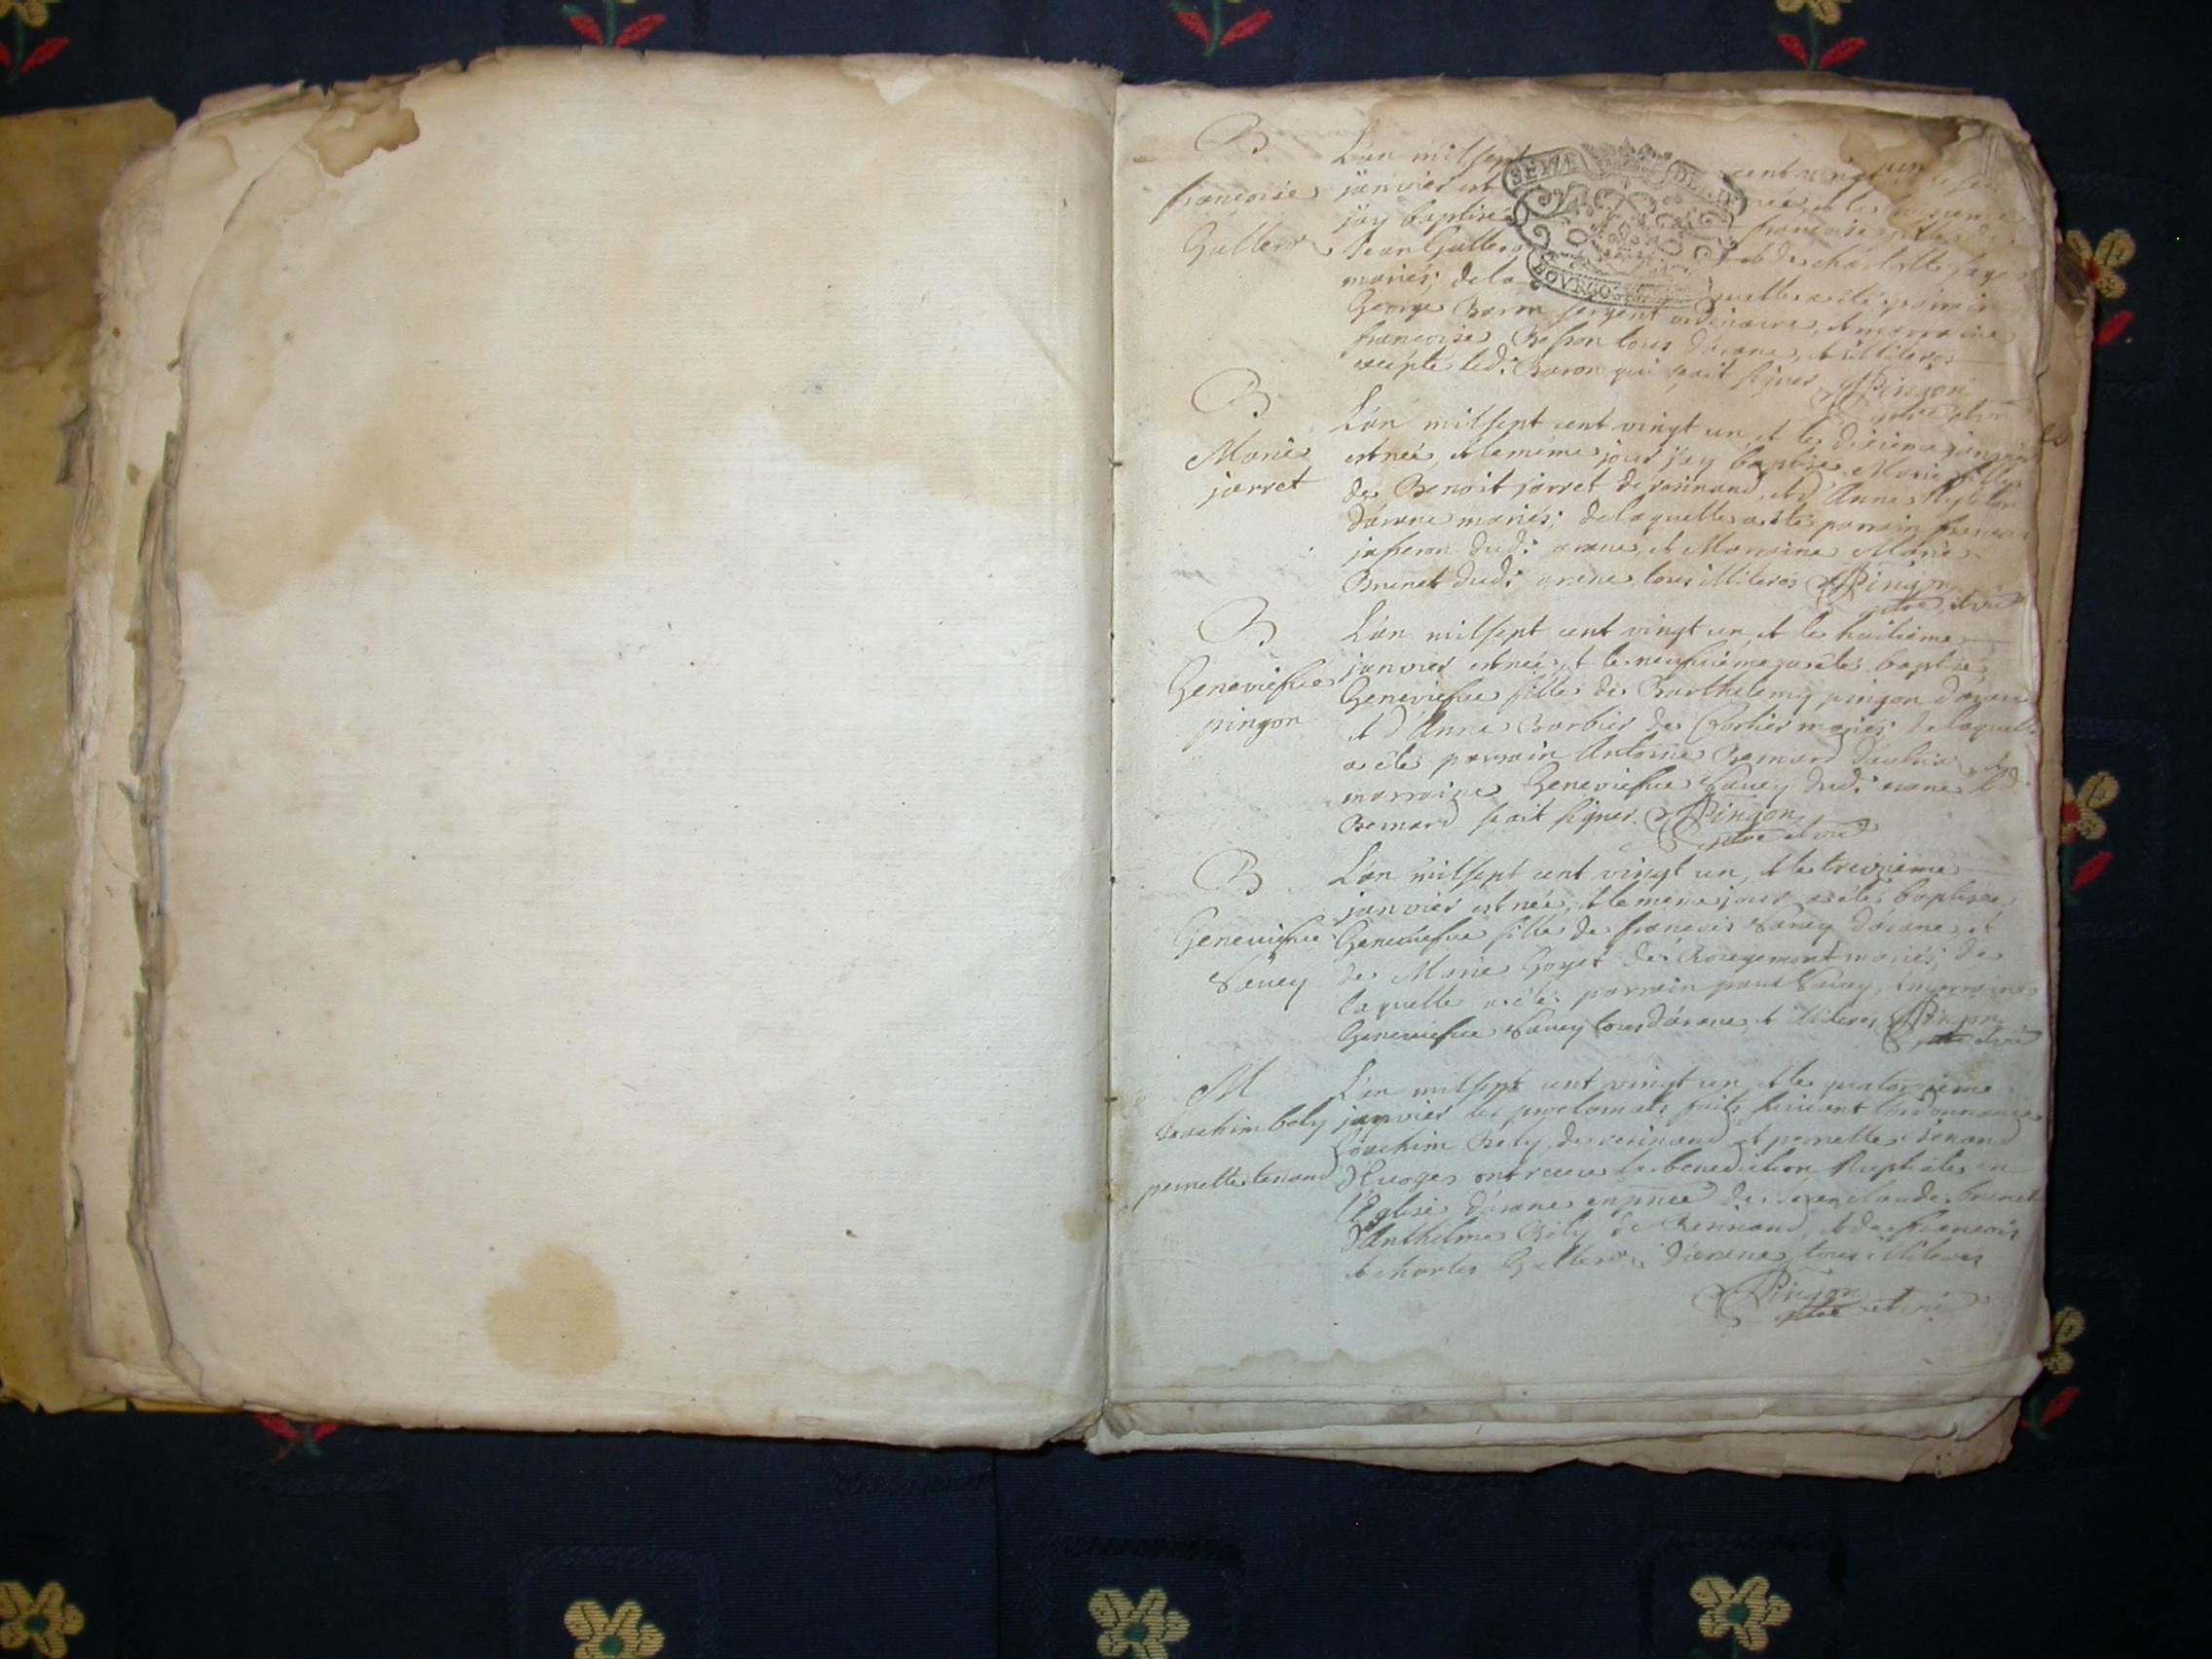 B
françoise
Gallero
L'an mil sept cent vingt un
janvier est née, et le
jay baptisé françoise fille de
Jean Gallero et de charlotte
mariés; de laquelle a été parrain
George Baron sergent ordinaire, et marraine
françoise tous d'arane, et illiteres
excépté led: Baron qui sçait signer Pingon
ptre et vic
SEIZE DEN
BOVRGO
B
Marie
jarret
L'an mil sept cent vingt un, et le dixieme janvier
est née, et le même jour j'ay baptisé Marie fille
de Benoit jarret de resinand, et d'Anne
d'arane mariés; de laquelle a été parrain
jasseron dud: arane, et Marraine Marie
Brunet dud: arane, tous illiteres Pingon
ptre et vic
B
Geneviefve
pingon
L'an mil sept cent vingt un, et le huitieme
janvier est née, et le neufvieme a été baptisé
Geneviefve fille de Barthelemy pingon d'arane
et d'Anne Barbier de mariés; de laquelle
a été parrain Antoine Bernard et
marraine Geneviefve Savey dud: arane led:
Bernard scait signer. Pingon
ptre et vic
B
Geneviefve
Savey
L'an mil sept cent vingt un, et le treizieme
janvier est née, et le même jour a été baptisée
Geneviefve fille de françois Savey d'arane, et
de Marie Goyet de Rougemont mariés; de
laquelle a été parrain paul Savey, et marraine
Geneviefve Savey tous d'arane, et illiteres Pingon
ptre et vic
M
Joachim bely
pernette tenand
L'an mil sept cent vingt un, et le quatorzieme
janvier les proclamats faits suivant l'ordonnance
Joachim Bely de resinand et pernette tenand
d'Evoges ont receu la benediction Nuptiale en
l'Eglise d'arane en pnce de claude brunet
d'Anthelme Bely de Resinand, et de françois
et charles Gallero d'arane, tous illiteres
Pingon
ptre et vic